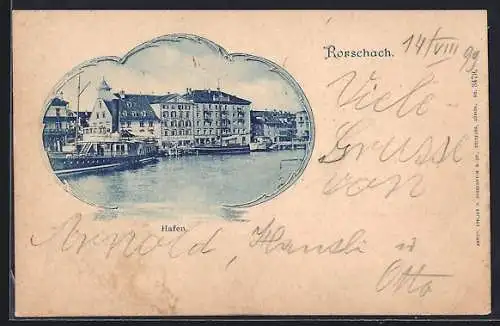 Rorschach.
14/VIII 99
Viele
Grüsse
von
Hafen.
Arnold, Hansli u
Otto